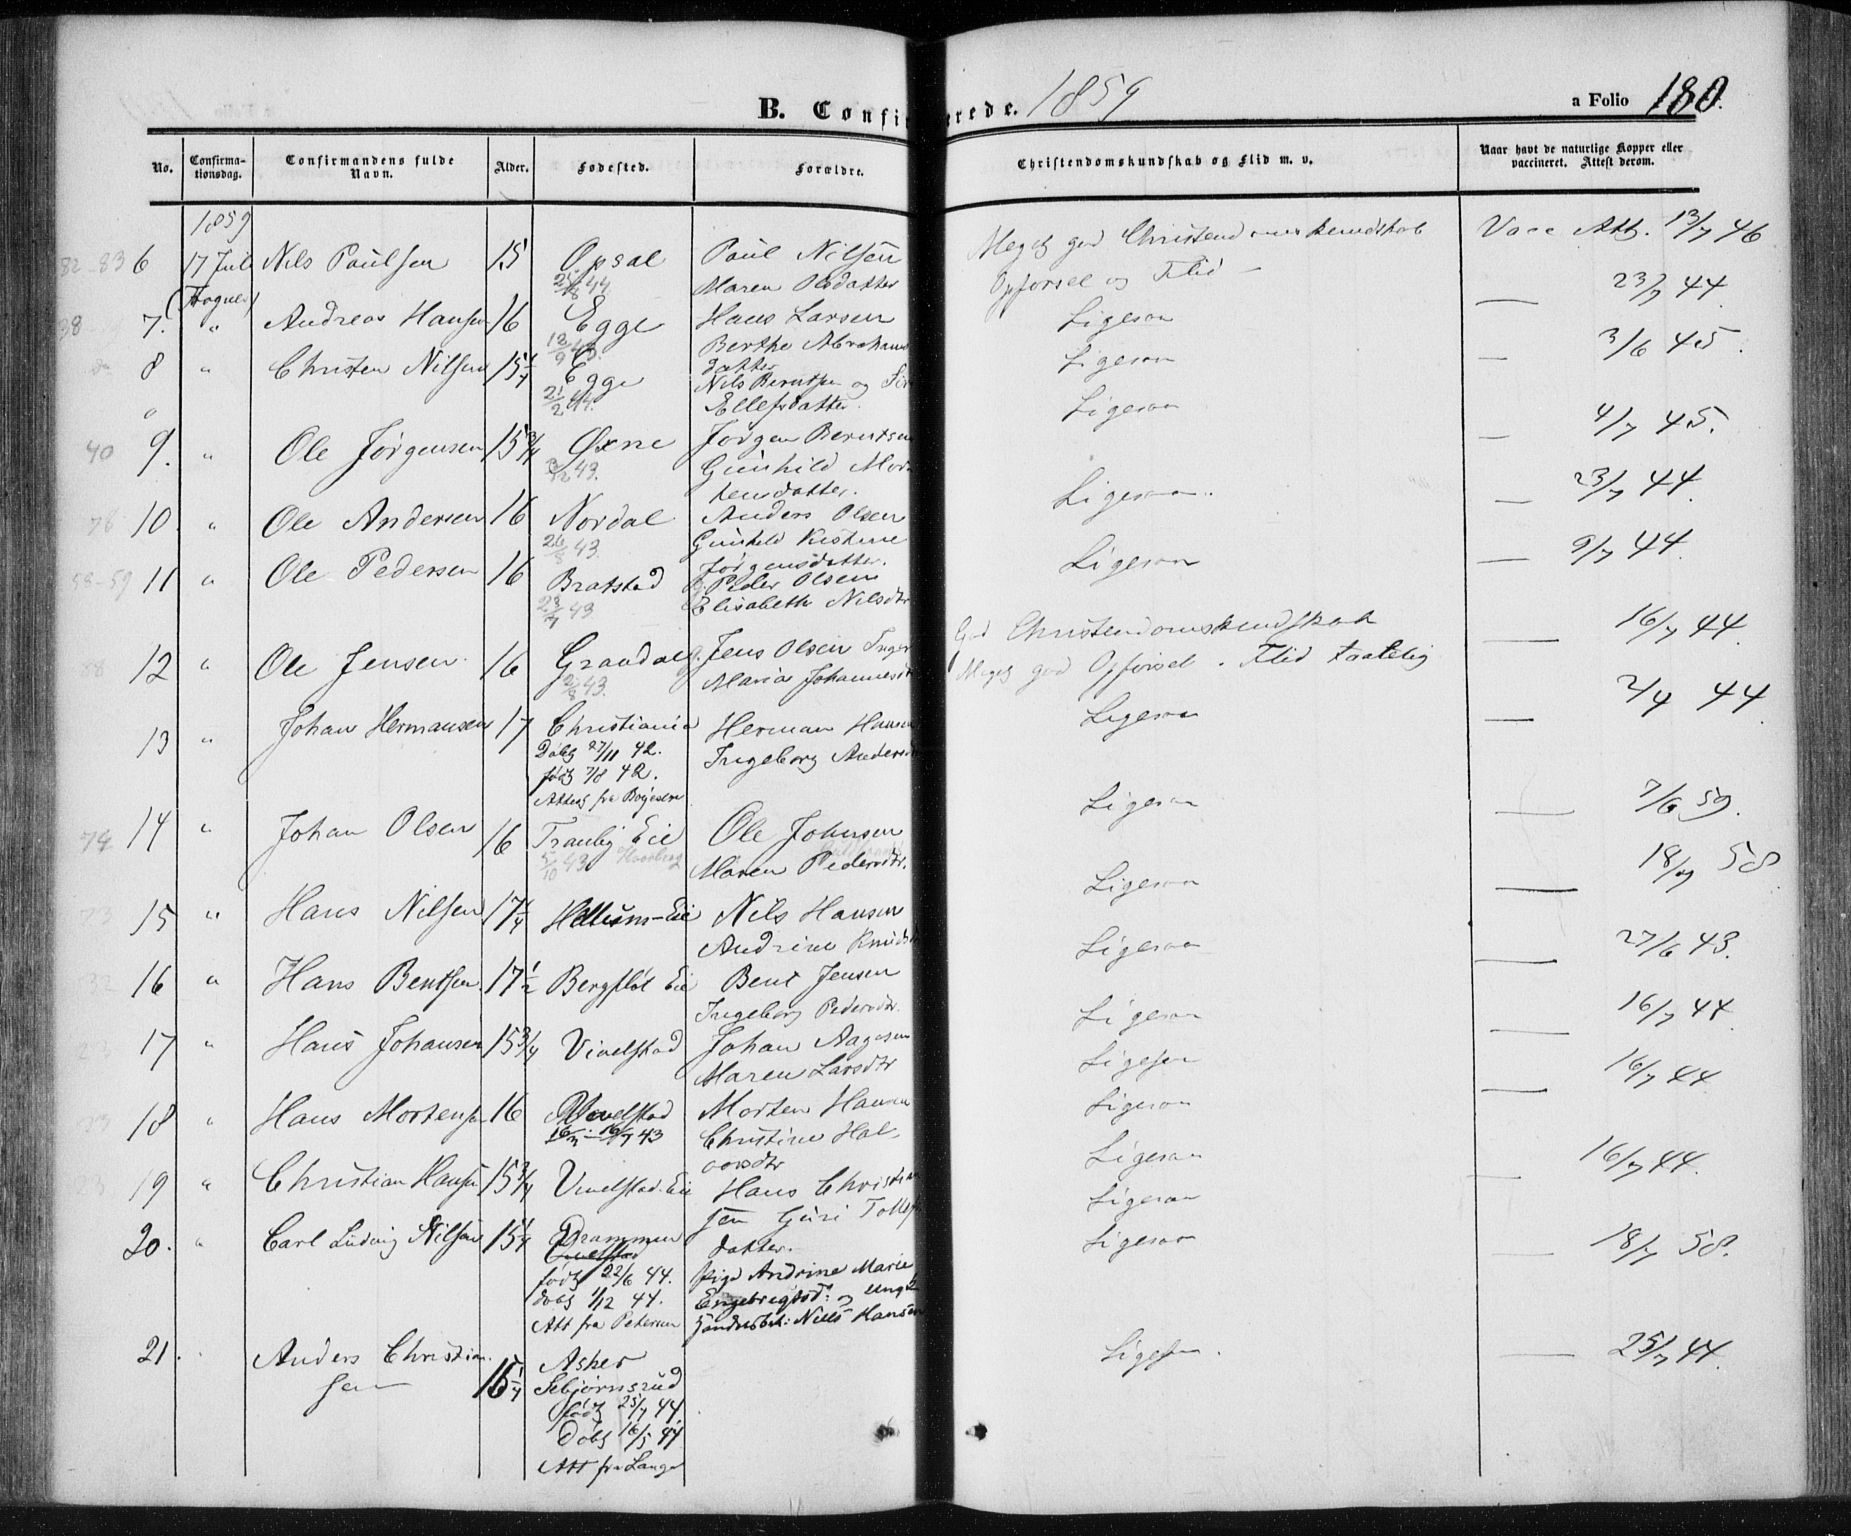 B. Confirmerede. 1859
a Folio 180.
No. Confirmationsdag. Confirmandens fulde Navn. Alder. Fødested. Forældre. Christendomskundskab og Flid m. v. Naar havt de naturlige Kopper eller vaccineret. Attest derom.
1859
82-83 6 17 Juli Nils Paulsen 15 Opsal Paul Nilsen Meget god Christendomskundskab Vacc Att. 13/7 46
Maren Olsdatter Opførsel og Flid
38 7. " Andreas Hansen 16 Egge Hans Larsen Ligesaa — 23/7 44
Berthe Abrahams
datter
8 " Christen Nilsen 15 1/4 Egge Nils Berntsen og Ligesaa — 3/6 45.
21/2 44. Ellefsdatter.
40 9. " Ole Jörgensen 15 3/4 Øxne Jörgen Berntsen Ligesaa — 4/7 45.
/12 43. Gunhild Mor
tensdatter.
78 10 " Ole Andersen 16 Nordal Anders Olsen Ligesaa. — 23/7 44.
43. Gunhild Kistine
Jörgensdatter.
58-59 11 " Ole Pedersen 16 Bratstad Peder Olsen Ligesaa — 9/7 44
43 Elisabeth Nilsdtr
88 12 " Ole Jensen. 16 Jens Olsen Inger God Christendomskundskab — 16/7 44.
/8 43. Maria Johannesdtr Meget god Opførsel. Flid taalelig
13 " Johan Hermansen 17 Christiania Herman Hansen Ligesaa — 2/4 44
Döbt 27/11 42. Ingeborg Andersdtr
födt 7/8 42.
Attest fra Boyesen
74 14 " Johan Olsen 16 Tranby Eie Ole Johnsen Ligesaa — 7/6 59.
5/10 43 Maren Pedersdtr.
73 15 " Hans Nilsen 17 1/4 Hellums-Eie Nils Hansen Ligesaa — 18/7 58
Andrine Knudsdtr
32 16 " Hans Bentsen 17 1/2 Bergflöt Eie Bent Jensen Ligesaa — 27/6 43.
Ingeborg Pedersdtr.
23 17 " Hans Johansen 15 3/4 Vivelstad Johan Aagesen Ligesaa — 16/7 44
Maren Larsdtr
23 18 " Hans Mortensen 16 Vivelstad Morten Hansen Ligesaa — 16/7 44
43 Christine Hal
vorsdtr
23 19 " Christian Hansen 15 3/4 Vivelstad-Eie Hans Christian Ligesaa — 16/7 44.
sen Guri Tollefs
datter.
20. " Carl Ludvig Nilsen 15 1/4 Drammen Ligesaa — 18/7 58.
födt 22/6 44. pige Andrine Marie
döbt 1/12 44. Engebrigtsd: og Ungk
Att fra Petersen Nills Hansen
21. " Anders Christian 15 1/4 Asker Ligesaa. — 25/7 44.
sen Sebjörnsrud
födt 25/7 44
Döbt 16/5 44
Att fra Lange